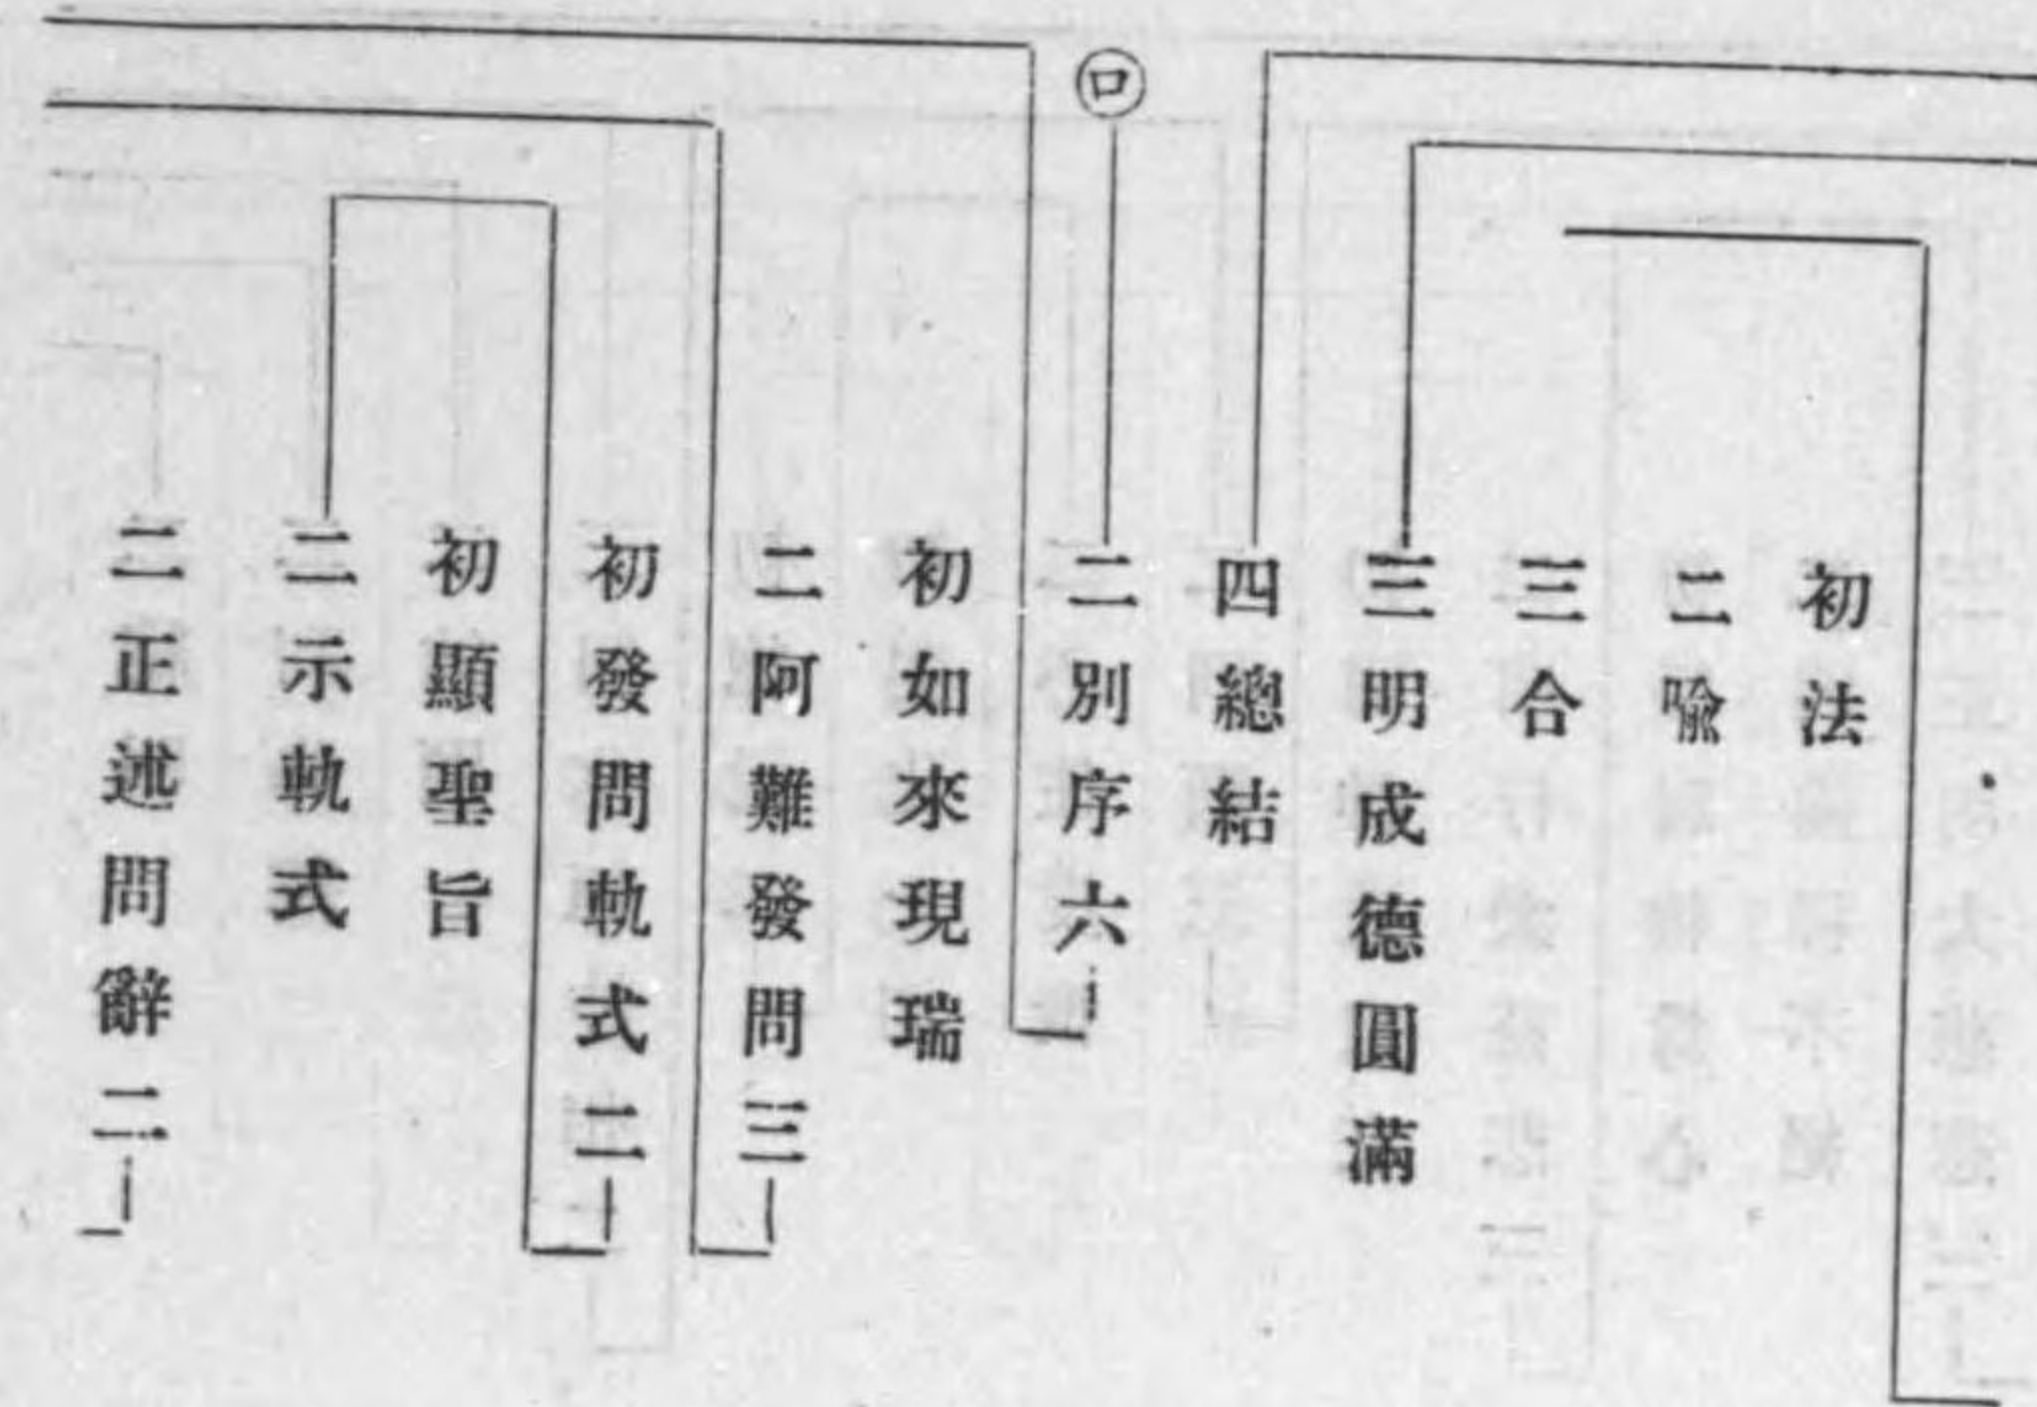 初法
二喩
三合
三明成德圓滿
四總結
㋺
二別序六
初如來現瑞
二阿難發問三
初發問軌式二
初顯聖旨
二示軌式
二正述問辭二